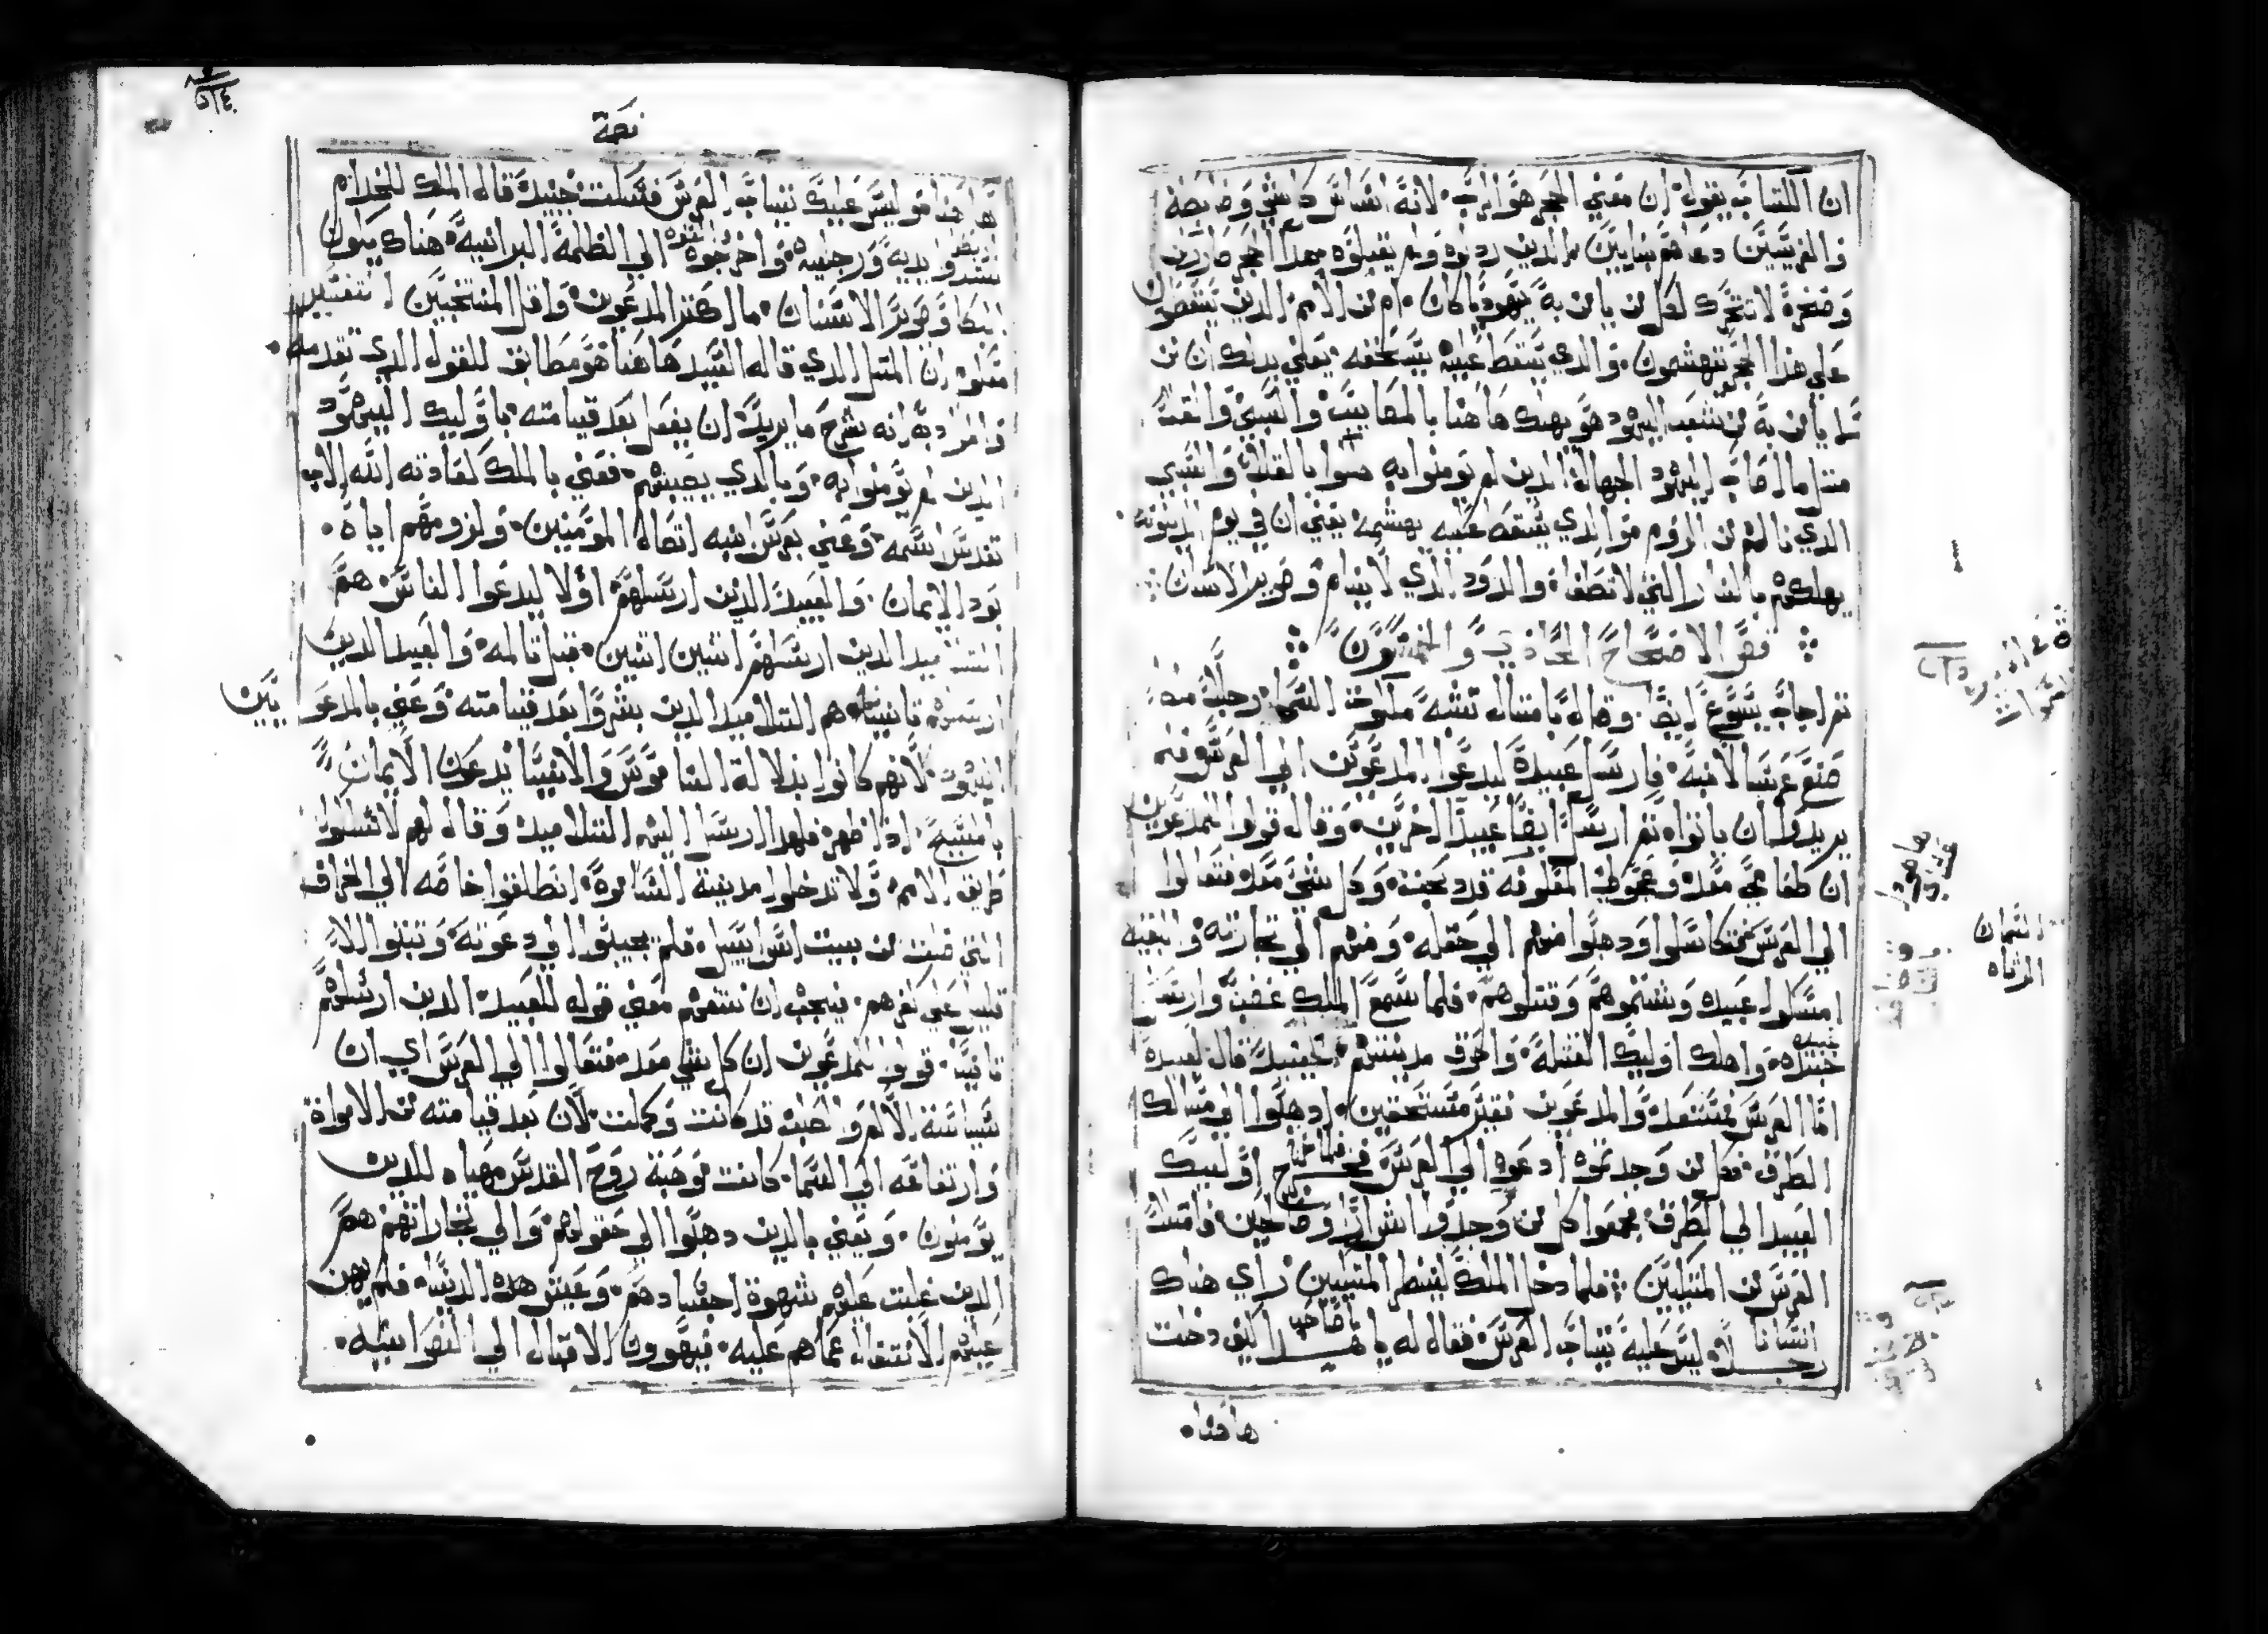 ان الكتاب يقول ان معني الحجر هو الرب لانه اساس كل شي وضابطه
والفريسيين دعاهم بنايين الدين ردلوه ولم يقبلوه بهدا الحجر صار لهم
وصخرة لا تتحرك لكل من يامن به يهوديا كان ام من الامم الدين يسقطون
علي هدا الحجر يتهشمون والدي يسقط عليه يسحقه يعني بدلك ان من
لا يامن به من شعب اليهود هو يهلك هاهنا بالمصايب والسبي والقتل
متل ما اصاب اليهود الجهال الدين لم يومنوا به والسبي
الدي نالهم من الروم والدي يسقط عليه يهشمه يعني ان في يوم الدينونه
يهلكهم بالنار التي لا تطفا والدود الدي لا ينام وصرير الاسنان
فص الاصحاح الحادي والخمسون
تم اجاب يسوع ايضا وقال بامتال تشبه ملكوت السما رجلا ملكا
صنع عرسا لابنه فارسل عبيده ليدعوا المدعوين الي العرس فلم
يريدوا ان ياتوا تم ارسل ايضا عبيدا اخرين وقال قولوا للمدعوين
ان طعامي معد وعجولي المعلوفه قد دبحت وكل شي معد فتعالوا
الي العرس فتكاسلوا ودهبوا منهم الي حقله ومنهم الي تجارته والبقيه
امسكوا عبيده وشتموهم وقتلوهم فلما سمع الملك غضب وارسل
جنده واهلك اوليك القتله واحرق مدينتهم حينيد قال لعبيده
اما العرس فمستعد والمدعوين فغير مستحقين ادهبوا الي مسالك
الطرق فكل من وجدتموه ادعوه الي العرس فخرج اوليك
العبيد الي الطرق فجمعوا كل من وجدوا اشرارا وصالحين فامتلا
العرس من المتكيين فلما دخل الملك لينظر المتكيين راي هناك
رجلا ليس عليه تياب العرس فقال له يا هدا كيف دخلت
هاهنا
هاهنا وليس عليك تياب العرس فسكت حينيد قال الملك للخدام
شدوا يديه ورجليه واخرجوه الي الظلمة البرانيه هناك يكون
البكا وصرير الاسنان ما اكتر المدعوين واقل المنتخبين التفسير
نقول ان المتل الدي قاله السيد هاهنا هو مطابق للقول الدي تقدمه
والمراد به انه شرح ما يريد ان يفعل بعد قيامته باوليك اليهود
الدين لم يومنوا به وبالدي يصيبهم فعني بالملك لعادته الله الاب
تقدس اسمه وعني بعرس ابنه اتصال المومنين ولزومهم اياه
بود الايمان والعبيد الدين ارسلهم اولا ليدعوا الناس هم
التلاميد الدين ارسلهم اتنين اتنين قبل تالمه والعبيد الدين
ارسلهم تانيا هم التلاميد الدين بشروا بعد قيامته وعني بالمدعويين
اليهود لانهم كانوا بدلالة الناموس والانبيا يدعون الايمان
بالمسيح ادا ظهر فلهدا ارسل اليهم التلاميد وقال لهم لا تسلكوا
طريق الامم ولا تدخلوا مدينة السامرة انطلقوا خاصه الي الخراف
التي ضلت من بيت اسراييل فلم يجيبوا الي دعوته وتبتوا الا
قليل علي كفرهم فيجب ان نتفهم معني قوله للعبيد الدين ارسلهم
تانيا قولوا للمدعوين ان كل شي معد فتعالوا الي العرس اي ان
سياسة الالم والصلب قد كانت وكملت لان بعد قيامته من الاموات
وارتفاعه الي السما كانت موهبة روح القدس مهياه للدين
يومنون ويعني بالدين دهبوا الي حقولهم والي تجاراتهم هم
الدين غلبت عليهم شهوة اجسادهم وعيش هده الدنيا فلم يهن
عليهم الانتقال عما هم عليه فيهوون الاقبال الي النصرانيه